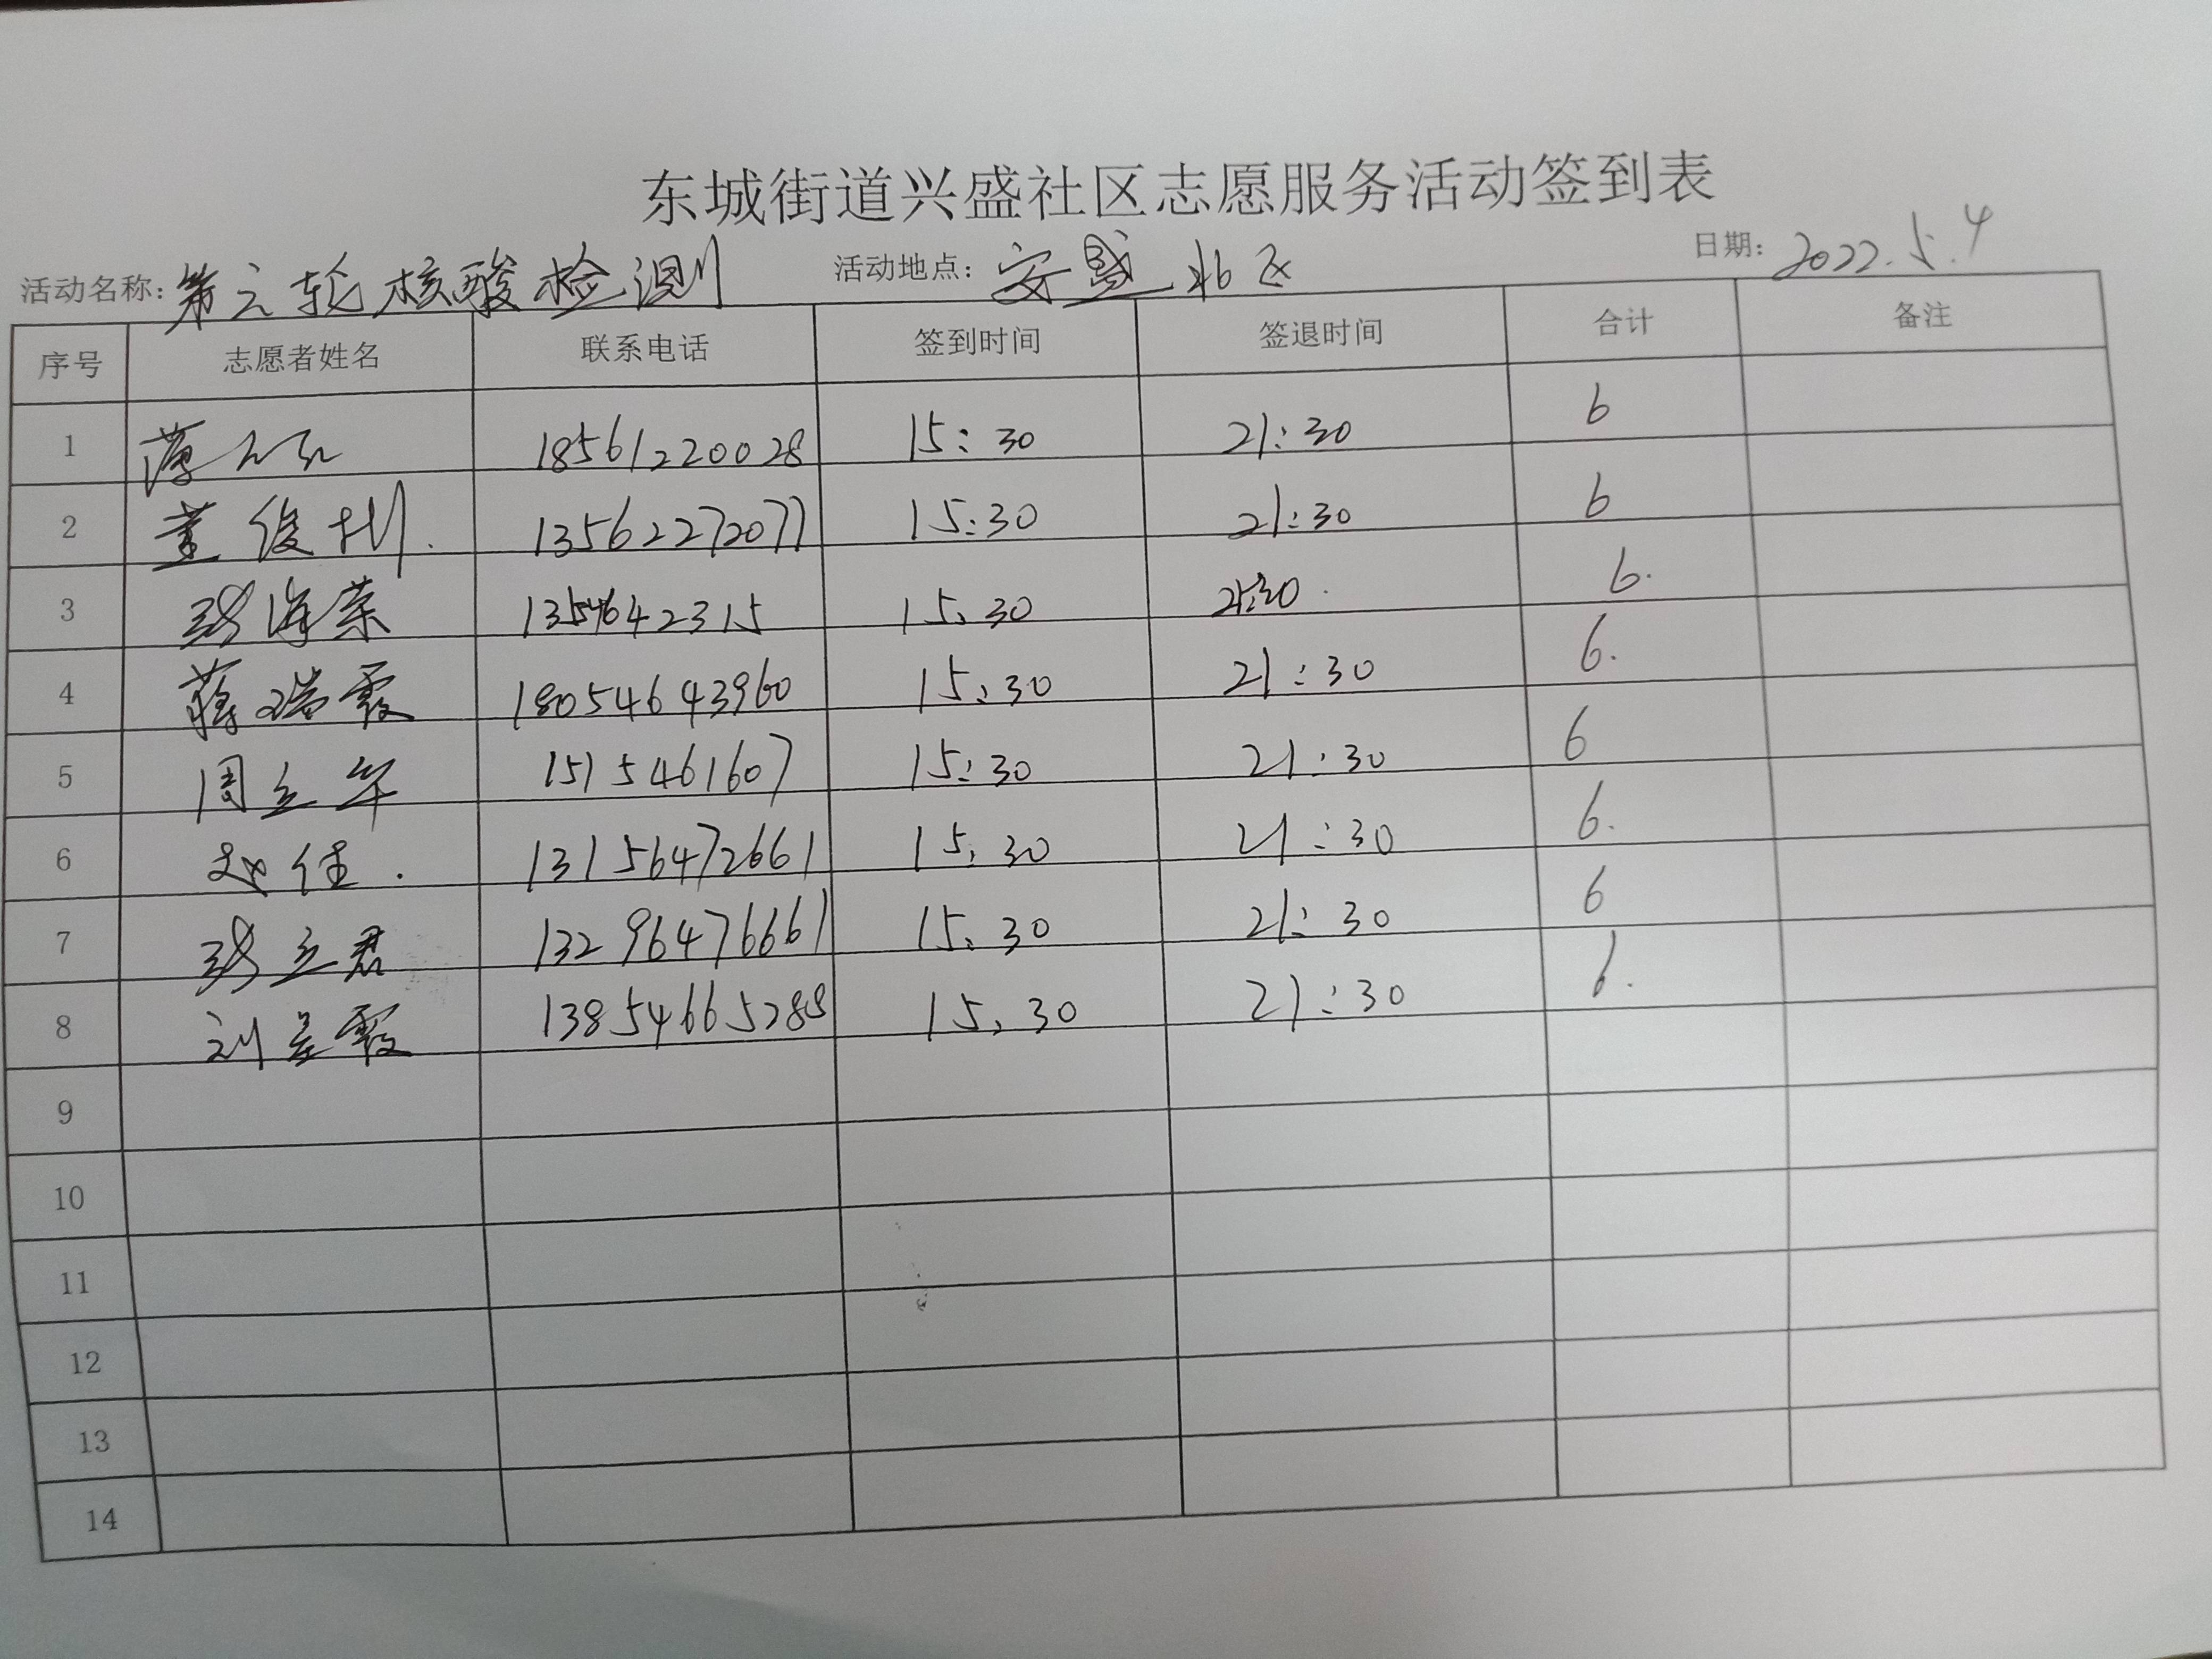 东城街道兴盛社区志愿服务活动签到表
活动名称：第三轮核酸检测 活动地点：安盛北区 日期：2022.5.4
序号 志愿者姓名 联系电话 签到时间 签退时间 合计 备注
1 薄 18561220028 15:30 21:30 6
2 董俊 13562272077 15:30 21:30 6
3 张海荣 15:30 21:30 6.
4 蒋瑞霞 18054643960 15:30 21:30 6.
5 周立军 1515461607 15:30 21:30 6
6 赵佳. 13156472661 15:30 21:30 6.
7 张立君 13296476661 15:30 21:30 6
8 刘 霞 13854665288 15:30 21:30 6.
9
10
11
12
13
14